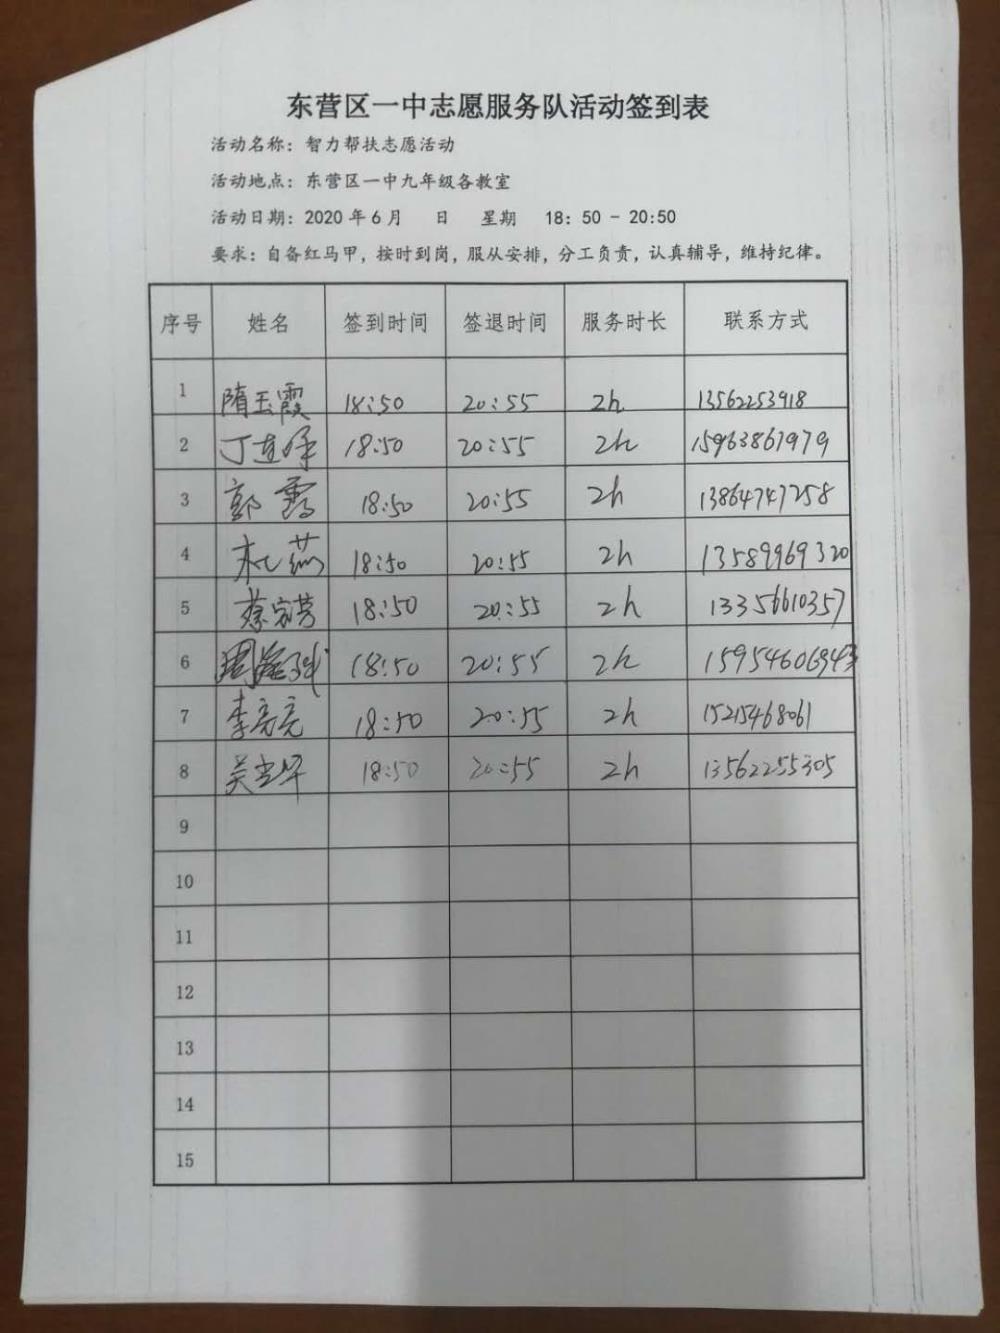 东营区一中志愿服务队活动签到表
活动名称：智力帮扶志愿活动
活动地点：东营区一中九年级各教室
活动日期：2020年6月 日 星期 18：50－20:50
要求：自备红马甲，按时到岗，服从安排，分工负责，认真辅导，维持纪律。
序号 姓名 签到时间 签退时间 服务时长 联系方式
1 隋玉霞 18:50 20:55 2h 13562253918
2 18:50 20:55 2h 15963867979
3 郭霞 18:50 20:55 2h 13864747258
4 杜燕 18:50 20:55 2h 13589969320
5 18:50 20:55 2h 13356610357
6 18:50 20:55 2h
7 李亮亮 18:50 20:55 2h 15215468061
8 18:50 20:55 2h 13562255305
9
10
11
12
13
14
15